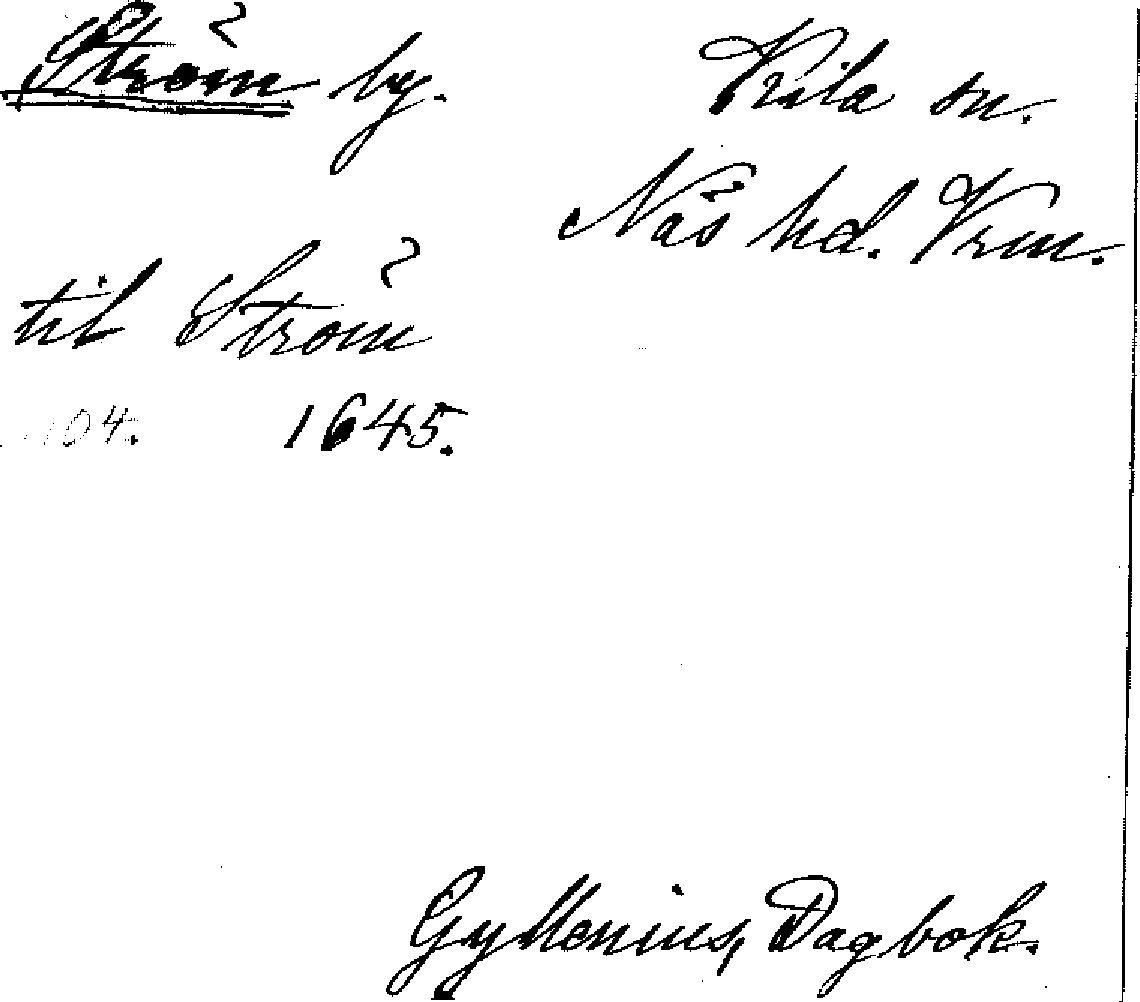 Ström by. Kila sn.
Näs hd. Vrm.
til Ström
104. 1645.
Gyllenius, Dagbok.